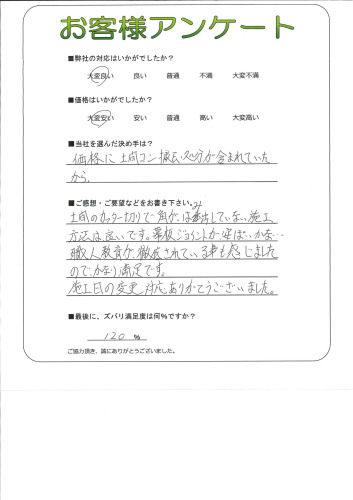 お客様アンケート
■弊社の対応はいかがでしたか？
大変良い 良い 普通 不満 大変不満
■価格はいかがでしたか？
大変安い 安い 普通 高い 大変高い
■当社を選んだ決め手は？
価格に土間コン撤去・処分が含まれていた
から。
■ご感想・ご要望などをお書き下さい。
土間のカッター切りで角がはみ出していない施工
方法は良いです。幕板ジョイントが
職人教育が徹底されている事も感じました
のでかなり満足です。
施工日の変更対応ありがとうございました。
■最後に、ズバリ満足度は何％ですか？
120 ％
ご協力頂き、誠にありがとうございました。